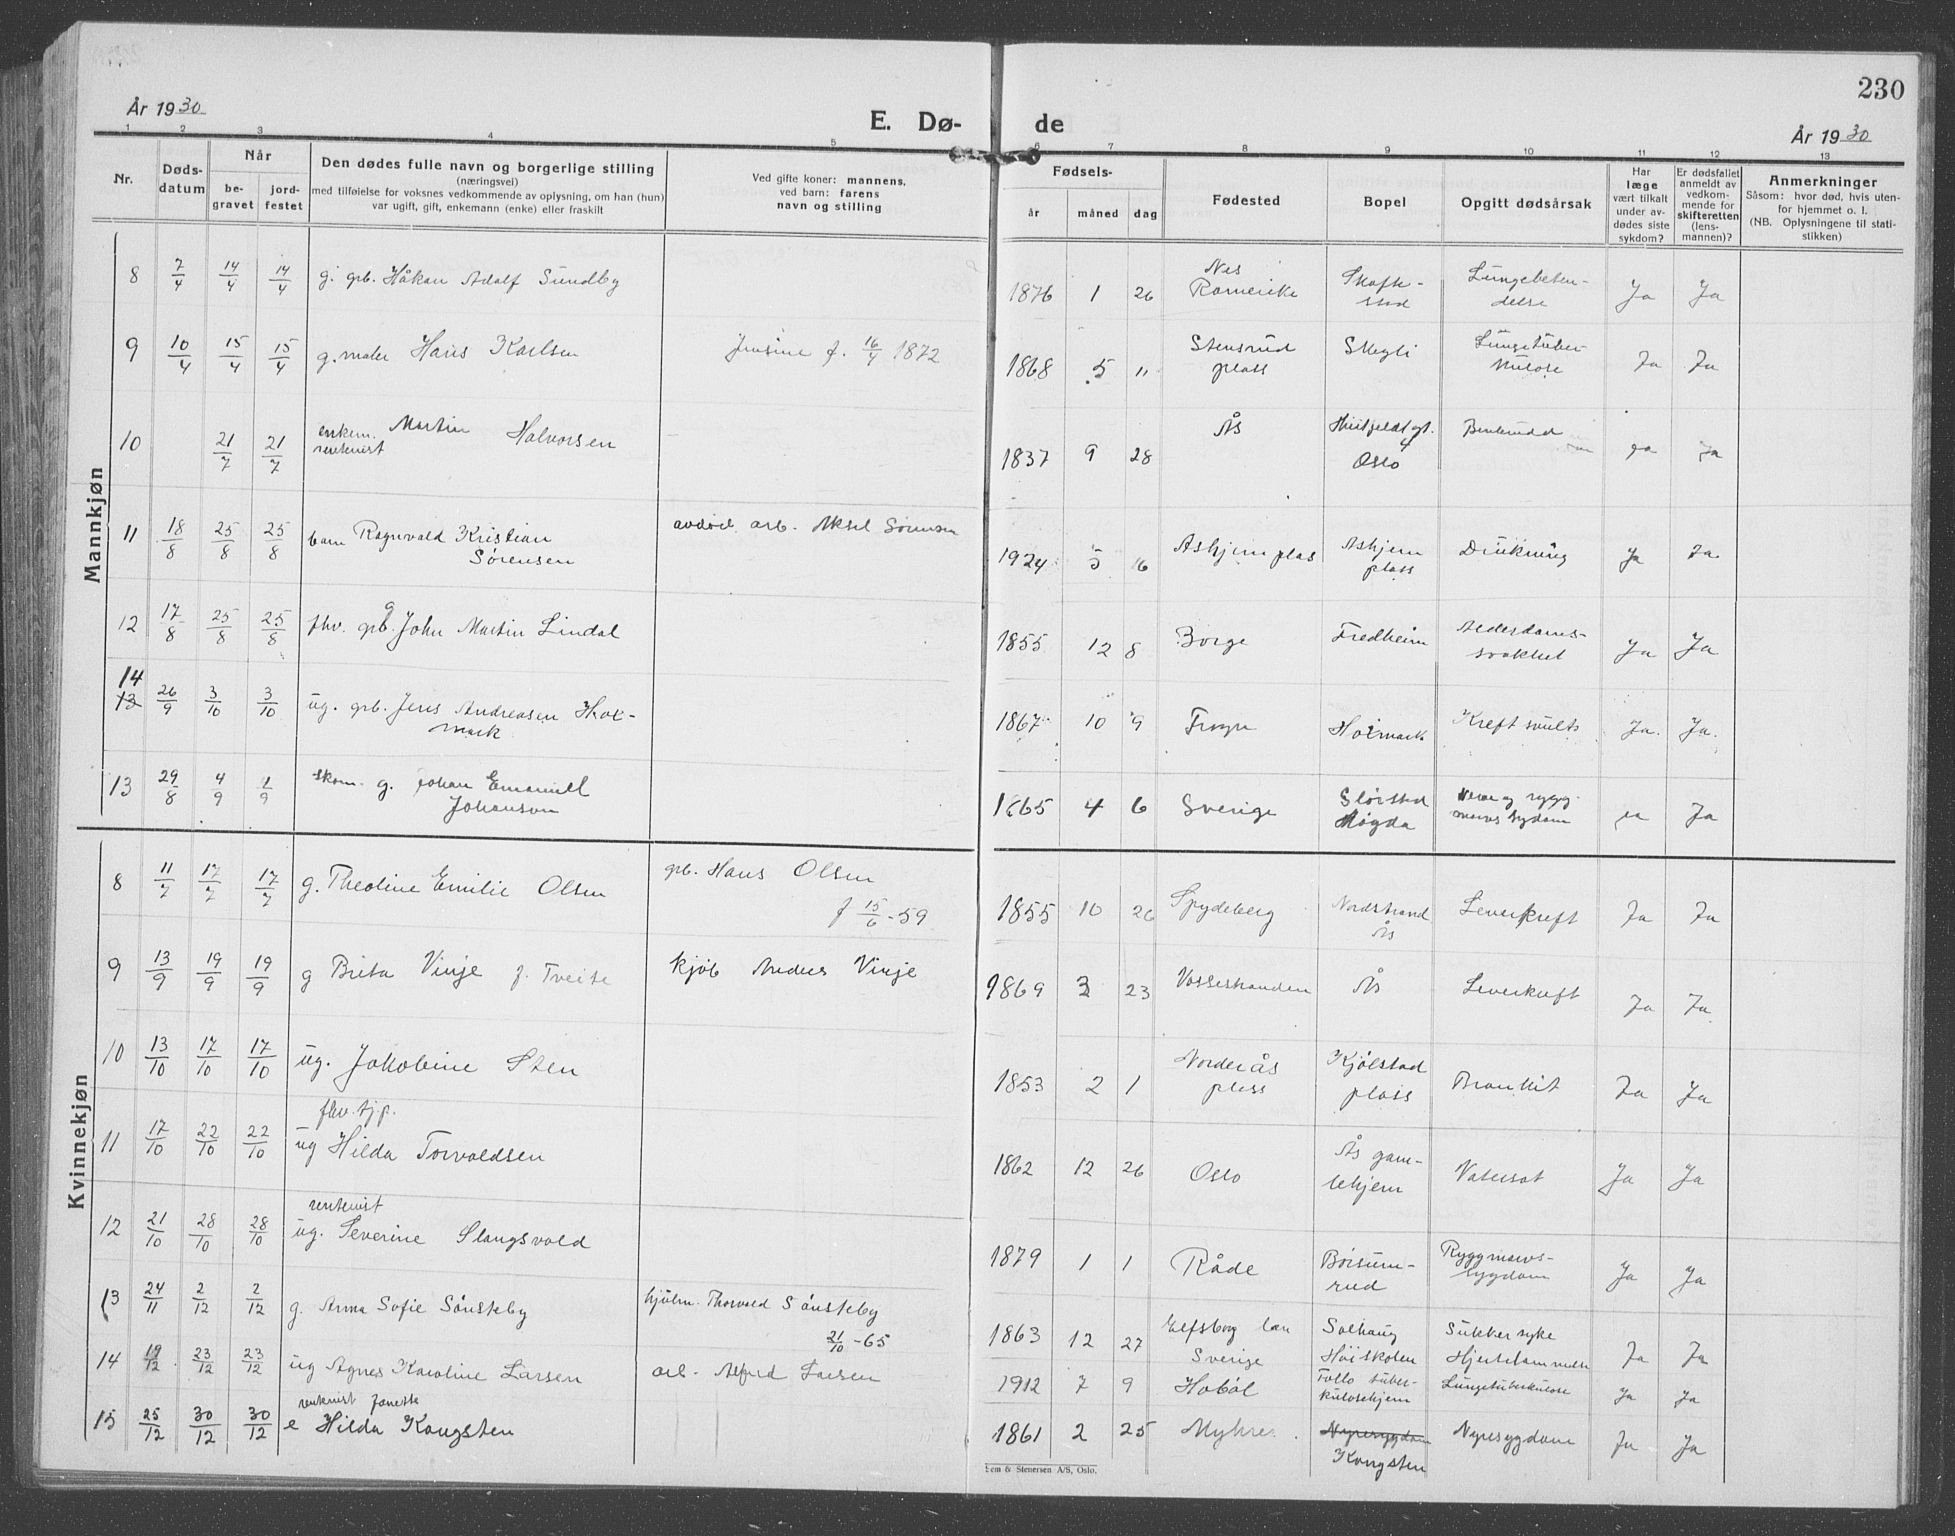 230
År 1930
E. Dø-
de
År 1930
1 2 3 4 5 6 7 8 9 10 11 12 13
Nr.
Døds-
datum
Når
be-
gravet
jord-
festet
Den dødes fulle navn og borgerlige stilling
(næringsvei)
med tilføielse for voksnes vedkommende av oplysning, om han (hun)
var ugift, gift, enkemann (enke) eller fraskilt
Ved gifte koner: mannens,
ved barn: farens
navn og stilling
Fødsels-
år måned dag
Fødested
Bopel
Opgitt dødsårsak
Har
læge
vært tilkalt
under av-
dødes siste
sykdom?
Er dødsfallet
anmeldt av
vedkom-
mende for
skifteretten
(lens-
mannen)?
Anmerkninger
Såsom: hvor død, hvis uten-
for hjemmet o. l.
(NB. Oplysningene til stati-
stikken)
Mannkjøn
8 7/4 14/4 14/4 g. grb. Håkan Adolf Sundby 1876 1 26 Nes Romerike Skafte-
stad Lungebeten-
delse Ja Ja
9 10/4 15/4 15/4 g. maler Hans Karlsen Jensine f. 16/4 1872 1868 5 11 Stensrud
plass Skogli Lungetuber-
kulose Ja Ja
10 21/7 21/7 enkem.
rentenist Martin Halvorsen 1837 9 28 Ås Huitfeldtgt.
4
Oslo Benbrudd ja Ja
11 18/8 25/8 25/8 barn Ragnvald Kristian
Sørensen avdød arb. Aksel Sørensen 1924 5 16 Askjem plas Askjem
plass Drukning Ja Ja
12 17/8 25/8 25/8 fhv. grb. g John Martin Lindal 1855 12 8 Borge Fredheim Alderdoms-
svakhet Ja Ja
14
13 26/9 3/10 3/10 ug. grb. Jens Andreasen Hol-
mark 1867 10 9 Frogn Holmark Kreft svults Ja. Ja.
13 29/8 4/9 4/9 skom. g. Johan Emanuell
Johanson 1865 4 6 Sverige Slørstad
Mogda Nerve og rygg-
marvs sygdom ja Ja
Kvinnekjøn
8 11/7 17/7 17/7 g. Theoline Emilie Olsen grb. Hans Olsen
f 15/6 - 59 1855 10 26 Spydeberg Nordstrand
Ås Leverkreft Ja Ja
9 13/9 19/9 19/9 g Brita Vinje f. Tveite kjøb Anders Vinje 1869 3 23 Vossestranden Ås Leverkreft Ja Ja
10 13/10 17/10 17/10 ug. Jakobine Sten 1853 2 1 Norderås
plass Kjølstad
plass Bronkit Ja Ja
11 17/10 22/10 22/10 fhv. tjp.
ug Hilda Torvaldsen 1862 12 26 Oslo Ås gam-
lehjem Vatersot Ja Ja
12 21/10 28/10 28/10 rentenist
ug. Severine Slangsvold 1879 1 1 Råde Børsum-
rud Ryggmarvs-
sygdom Ja Ja
13 24/11 2/12 2/12 g. Anna Sofie Sønsteby hjulm. Thorvald Sønsteby
21/10 - 65 1863 12 27 Elfsborg län
Sverige Solhaug
Høiskolen Sukkersyke
Hjertelammelse Ja Ja
14 19/12 23/12 23/12 ug Agnes Karoline Larsen arb. Alfred Larsen 1912 7 9 Hobøl Follo tuber-
kulosehjem Lungetuberkulose Ja Ja
15 25/12 30/12 30/12 rentenist Janette
e Hilda Kongsten 1861 2 25 Myhre Nyresygdom
Kongsten Nyresygdom Ja Ja
Lem & Stenersen A/S, Oslo.